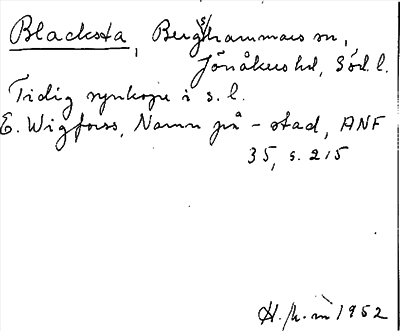 Blacksta, Bergshammars sn,
Jönåkers hd, Söd. l.
Tidig synkope i s. l.
E. Wigforss, Namn på -stad, ANF
35, s. 215
1952